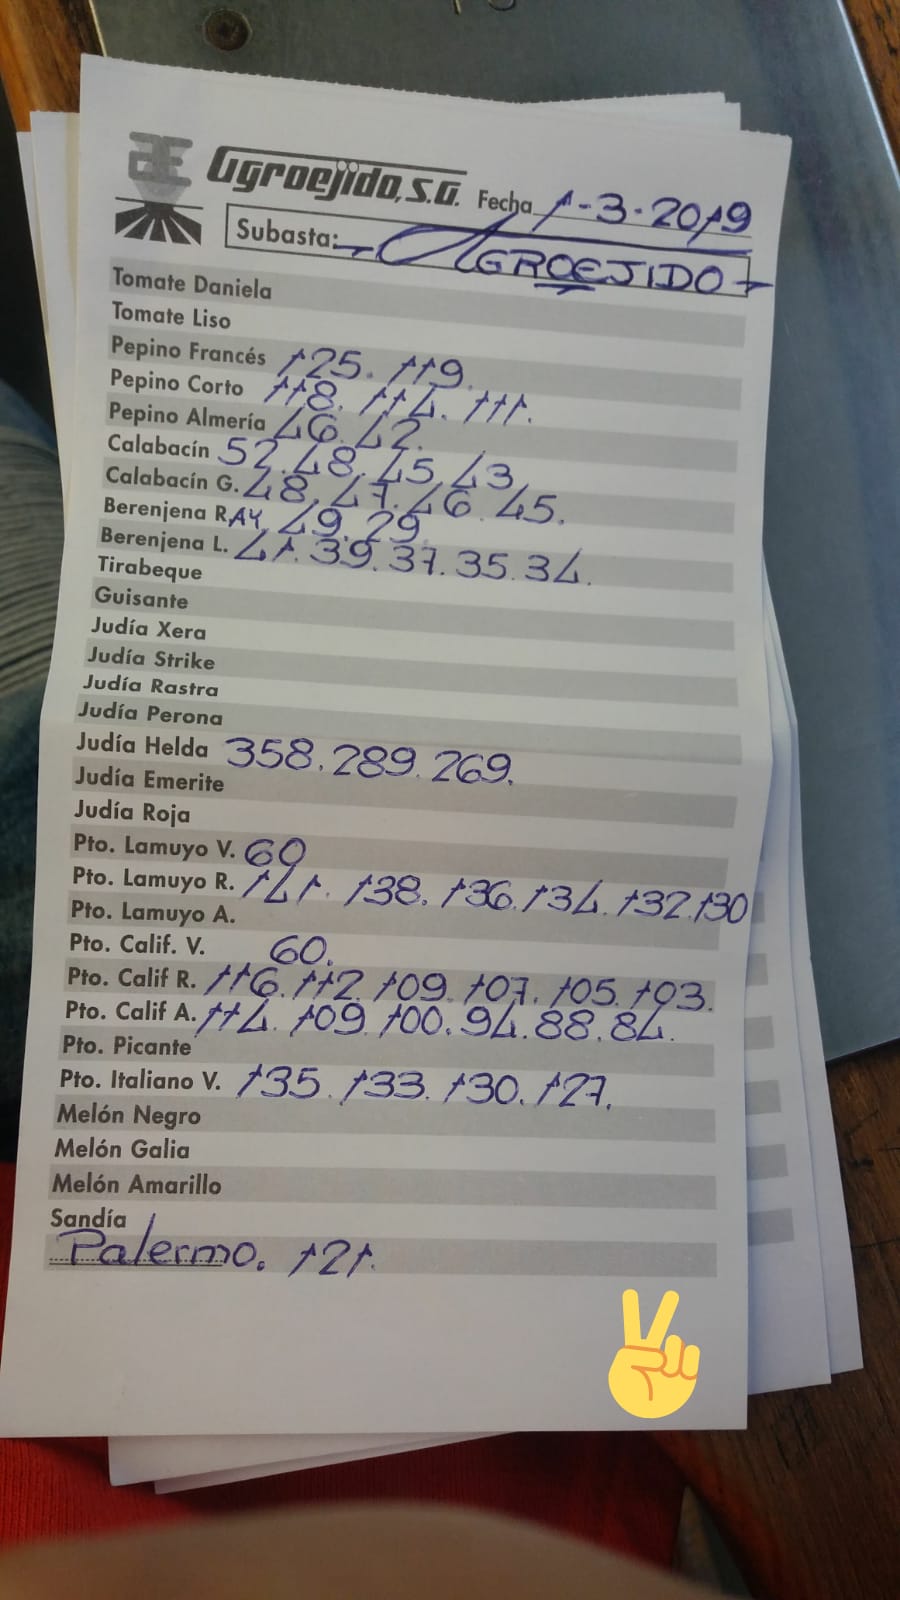 Agroejido, S.A. Fecha 1-3-2019
Subasta: - AGROEJIDO -
Tomate Daniela
Tomate Liso
Pepino Francés 125. 119.
Pepino Corto 118. 114. 111.
Pepino Almería 46. 42.
Calabacín 52. 48. 45. 43
Calabacín G. 48. 47. 46. 45.
Berenjena RAY 49. 29.
Berenjena L. 41. 39. 37. 35. 34.
Tirabeque
Guisante
Judía Xera
Judía Strike
Judía Rastra
Judía Perona
Judía Helda 358. 289. 269.
Judía Emerite
Judía Roja
Pto. Lamuyo V. 60
Pto. Lamuyo R. 141. 138. 136. 134. 132. 130
Pto. Lamuyo A.
Pto. Calif. V. 60.
Pto. Calif R. 116. 112. 109. 107. 105. 103.
Pto. Calif A. 114. 109. 100. 94. 88. 84.
Pto. Picante
Pto. Italiano V. 135. 133. 130. 127.
Melón Negro
Melón Galia
Melón Amarillo
Sandía
Palermo. 121.